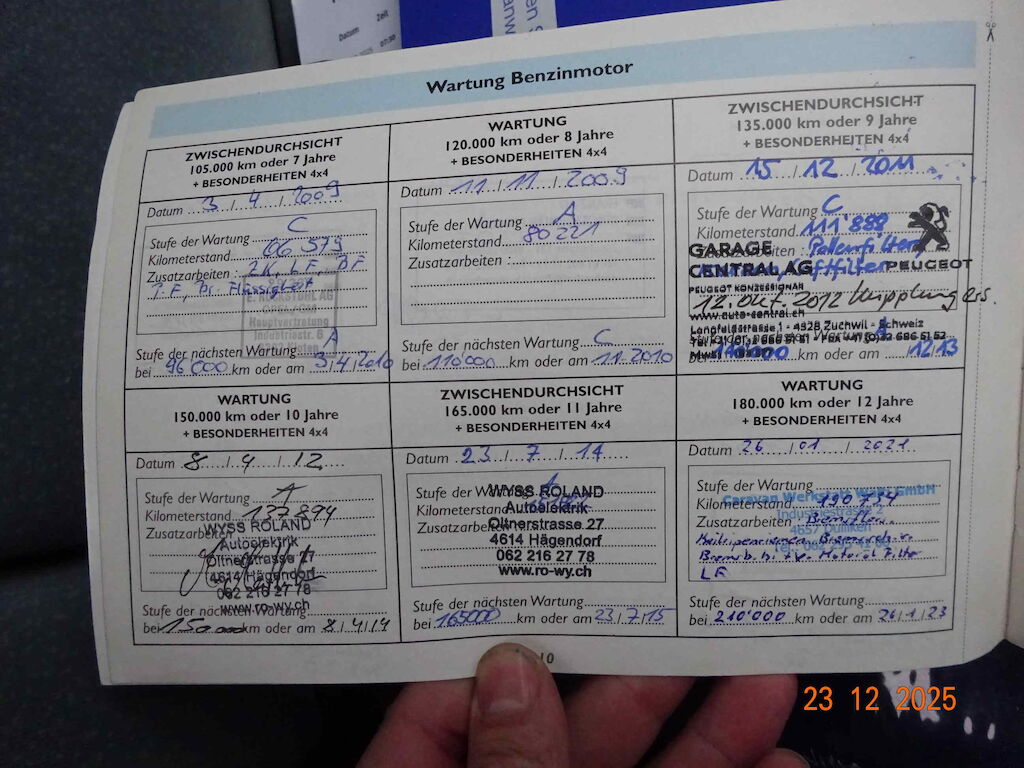 Datum
Zeit
07:30
Wartung Benzinmotor
ZWISCHENDURCHSICHT
105.000 km oder 7 Jahre
+ BESONDERHEITEN 4x4
Datum 3 / 4 / 2009
Stufe der Wartung C
Kilometerstand
Zusatzarbeiten :
Br. Flüssigkeit
E. ROKSTUHL AG
Hauptvertretung
Industriestr. 6
Kloten
Stufe der nächsten Wartung A
bei 96000 km oder am 3/4/2010
WARTUNG
120.000 km oder 8 Jahre
+ BESONDERHEITEN 4x4
Datum 11 / 11 / 2009
Stufe der Wartung A
Kilometerstand 80221
Zusatzarbeiten :
Stufe der nächsten Wartung C
bei 110'000 km oder am 11.2010
ZWISCHENDURCHSICHT
135.000 km oder 9 Jahre
+ BESONDERHEITEN 4x4
Datum 15 / 12 / 2011
Stufe der Wartung C
Kilometerstand 111'888
Zusatzarbeiten : Pollenfilter,
Luftfilter
GARAGE
CENTRAL AG
PEUGEOT
PEUGEOT KONZESSIONÄR
12. Okt. 2012 Kupplung ers.
www.auto-central.ch
Langfeldstrasse 1 - 4528 Zuchwil - Schweiz
Stufe der nächsten Wartung A
bei km oder am /12/13
WARTUNG
150.000 km oder 10 Jahre
+ BESONDERHEITEN 4x4
Datum 8 / 4 / 12
Stufe der Wartung A
Kilometerstand 137894
Zusatzarbeiten
WYSS ROLAND
Autoelektrik
Oltnerstrasse 27
4614 Hägendorf
062 216 27 78
www.ro-wy.ch
Stufe der nächsten Wartung
bei 150000 km oder am 8/4/14
ZWISCHENDURCHSICHT
165.000 km oder 11 Jahre
+ BESONDERHEITEN 4x4
Datum 23 / 7 / 14
Stufe der Wartung
Kilometerstand
Zusatzarbeiten
WYSS ROLAND
Autoelektrik
Oltnerstrasse 27
4614 Hägendorf
062 216 27 78
www.ro-wy.ch
Stufe der nächsten Wartung
bei 165000 km oder am 23/7/15
WARTUNG
180.000 km oder 12 Jahre
+ BESONDERHEITEN 4x4
Datum 26 / 01 / 2021
Stufe der Wartung
Kilometerstand 190734
Zusatzarbeiten
Caravan GmbH
Industriestrasse
LF
Stufe der nächsten Wartung
bei 210'000 km oder am 26/1/23
10
23 12 2025